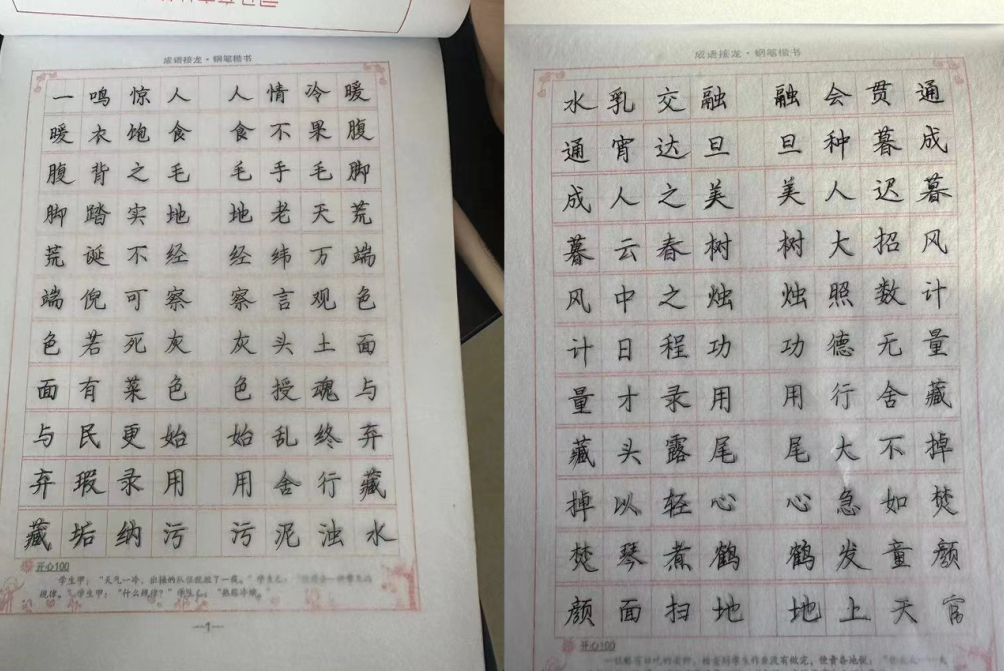 成语接龙·钢笔楷书
一鸣惊人 人情冷暖
暖衣饱食 食不果腹
腹背之毛 毛手毛脚
脚踏实地 地老天荒
荒诞不经 经纬万端
端倪可察 察言观色
色若死灰 灰头土面
面有菜色 色授魂与
与民更始 始乱终弃
弃瑕录用 用舍行藏
藏垢纳污 污泥浊水
开心100
学生甲:“天气一冷,出操的队伍就短了一截。”学生乙:
规律。”学生甲:“什么规律?”学生乙:“热胀冷缩。”
—1—
成语接龙·钢笔楷书
水乳交融 融会贯通
通宵达旦 旦种暮成
成人之美 美人迟暮
暮云春树 树大招风
风中之烛 烛照数计
计日程功 功德无量
量才录用 用行舍藏
藏头露尾 尾大不掉
掉以轻心 心急如焚
焚琴煮鹤 鹤发童颜
颜面扫地 地上天官
开心100